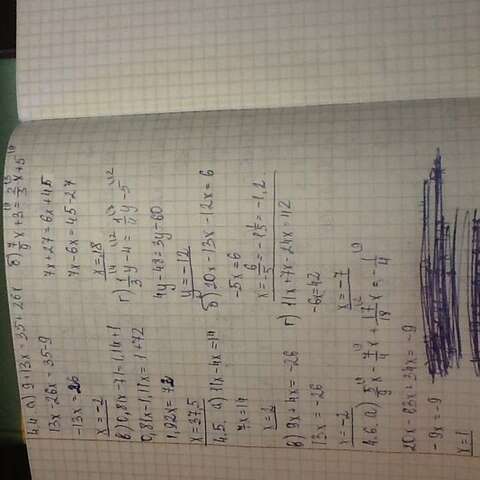 4.4. а) 9+13x = 35+26x
13x-26x = 35-9
-13x = 26
x = -2
б) 7/9 x + 3 = 2/3 x + 5
7x+27 = 6x+45
7x-6x = 45-27
x = 18
в) 0,81x-71=1,11x+1
0,81x-1,11x = 1+72
1,92x = 72
x = 37,5
г) 1/3 y - 4 = 1/4 y - 5
4y-48=3y-60
y = -12
4.5. а) 11x-4x=14
7x=14
x=2
б) 20x-13x-12x=6
-5x=6
x = 6/-5 = -1 1/5 = -1,2
в) 9x+4x= -26
13x = -26
x=-2
г) 11x+7x-24x=42
-6x=42
x=-7
4.6. а) 5/9 x - 7/4 x + 17/18 x = -1/4
20x-63x+34x = -9
-9x=-9
x=1